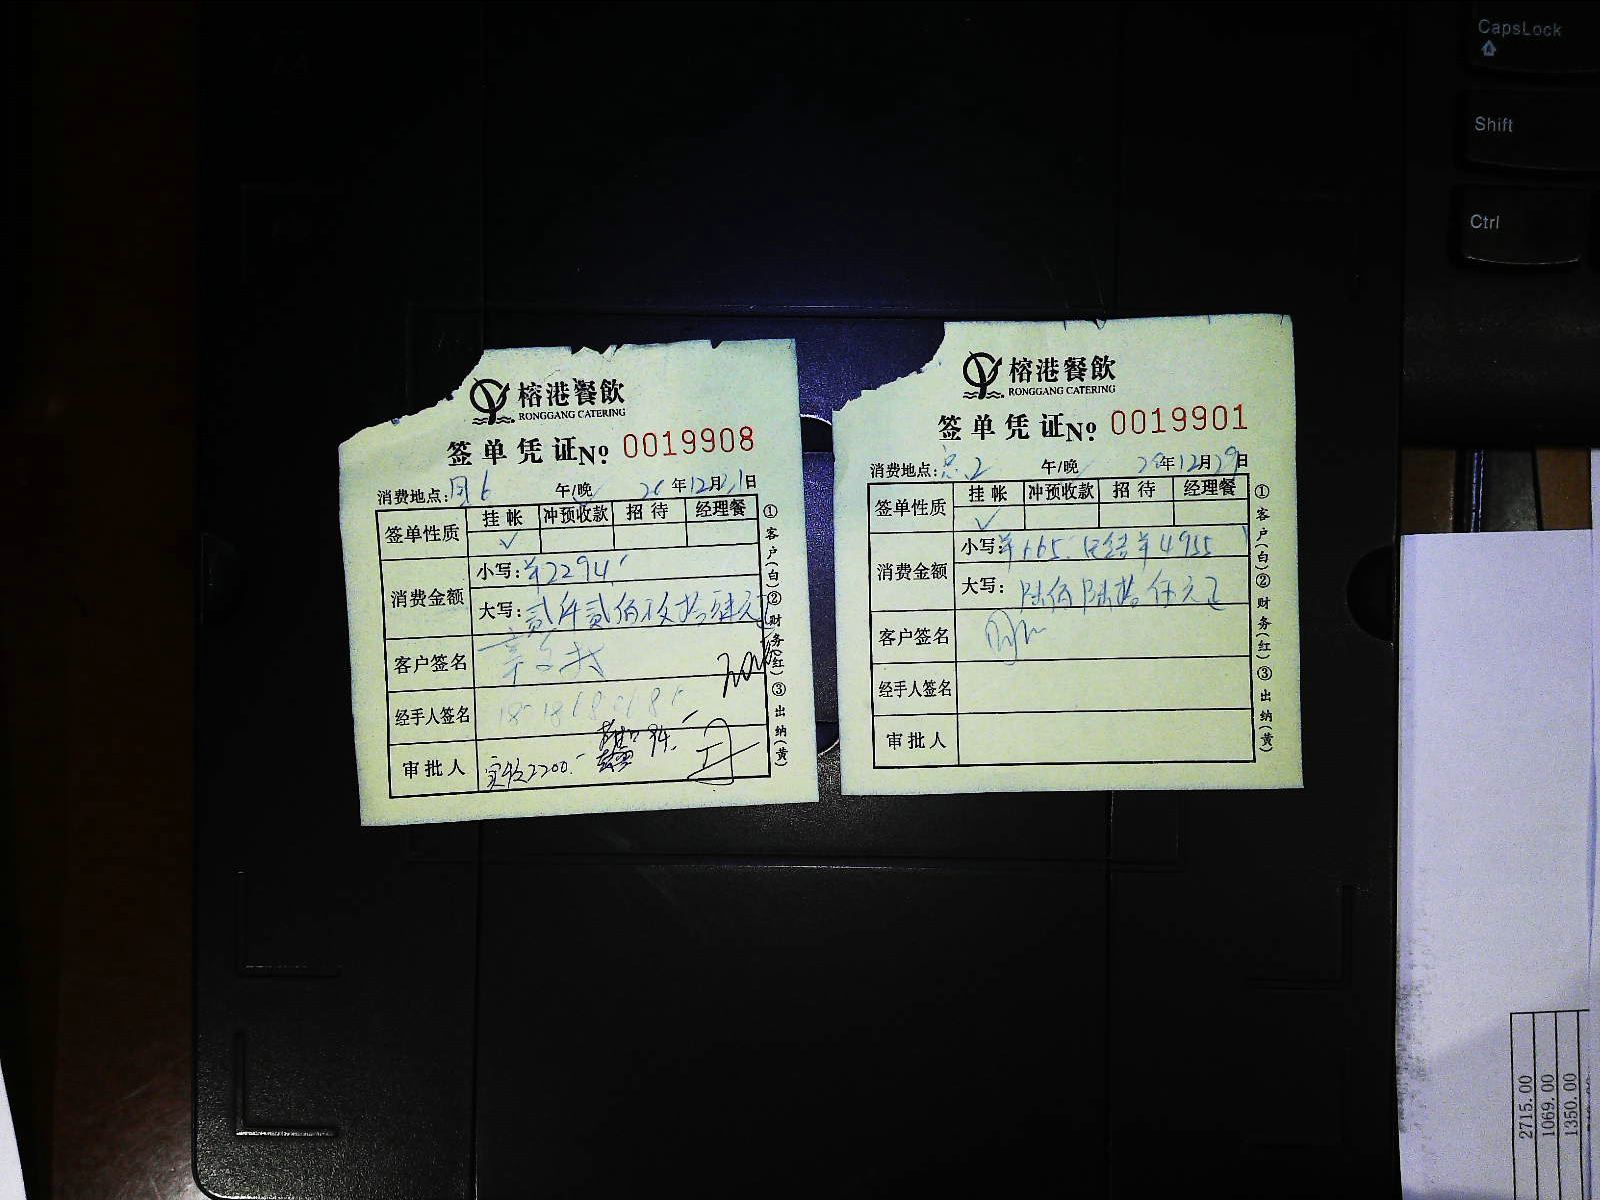 CapsLock
Shift
Ctrl
榕港餐飲
RONGGANG CATERING
签单凭证No. 0019908
消费地点: 6 午/晚 年12月 日
签单性质 挂帐 冲预收款 招待 经理餐
✓
消费金额 小写:¥2294.
大写:贰仟贰佰玖拾肆元
客户签名
经手人签名
审批人 实收2200.
①客户(白)②财务(红)③出纳(黄)
榕港餐飲
RONGGANG CATERING
签单凭证No. 0019901
消费地点: 2 午/晚 20年12月29日
签单性质 挂帐 冲预收款 招待 经理餐
✓
消费金额 小写:¥665. 已结¥4955
大写:陆佰陆拾伍元正
客户签名
经手人签名
审批人
①客户(白)②财务(红)③出纳(黄)
2715.00
1069.00
1350.00